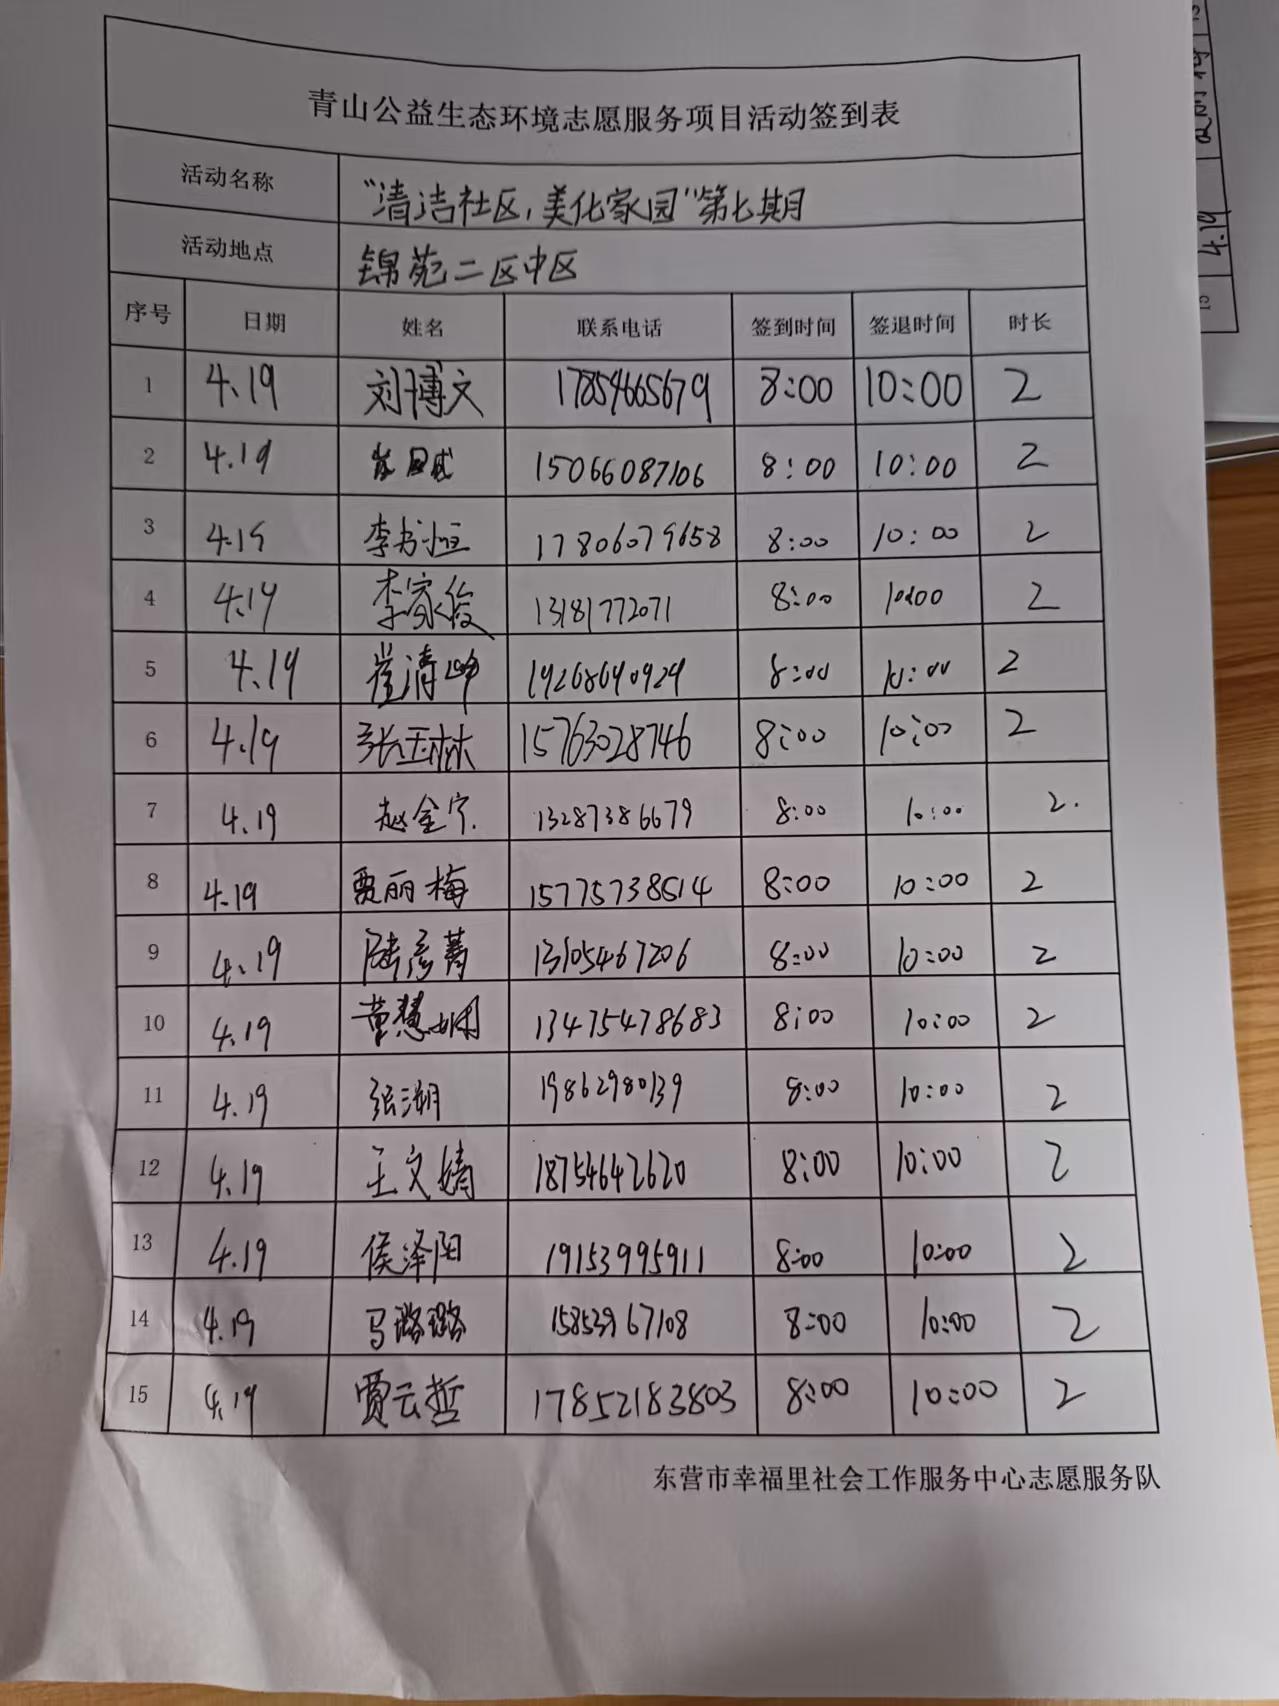 青山公益生态环境志愿服务项目活动签到表
活动名称 “清洁社区,美化家园”第七期
活动地点 锦苑二区中区
序号 日期 姓名 联系电话 签到时间 签退时间 时长
1 4.19 刘博文 17854665679 8:00 10:00 2
2 4.19 15066087106 8:00 10:00 2
3 4.19 李书恒 17806079658 8:00 10:00 2
4 4.19 李家俊 13181772071 8:00 10:00 2
5 4.19 崔清峥 19268690929 8:00 10:00 2
6 4.19 张玉林 15763028746 8:00 10:00 2
7 4.19 赵金宁. 13287386679 8:00 10:00 2.
8 4.19 贾丽梅 15775738514 8:00 10:00 2
9 4.19 陆彦菁 13105467206 8:00 10:00 2
10 4.19 董慧娴 13475478683 8:00 10:00 2
11 4.19 张湖 19862980139 8:00 10:00 2
12 4.19 王文婧 18754642620 8:00 10:00 2
13 4.19 侯泽阳 19153995911 8:00 10:00 2
14 4.19 马璐璐 15853967108 8:00 10:00 2
15 4.19 贾云哲 17852183803 8:00 10:00 2
东营市幸福里社会工作服务中心志愿服务队
4.19
15